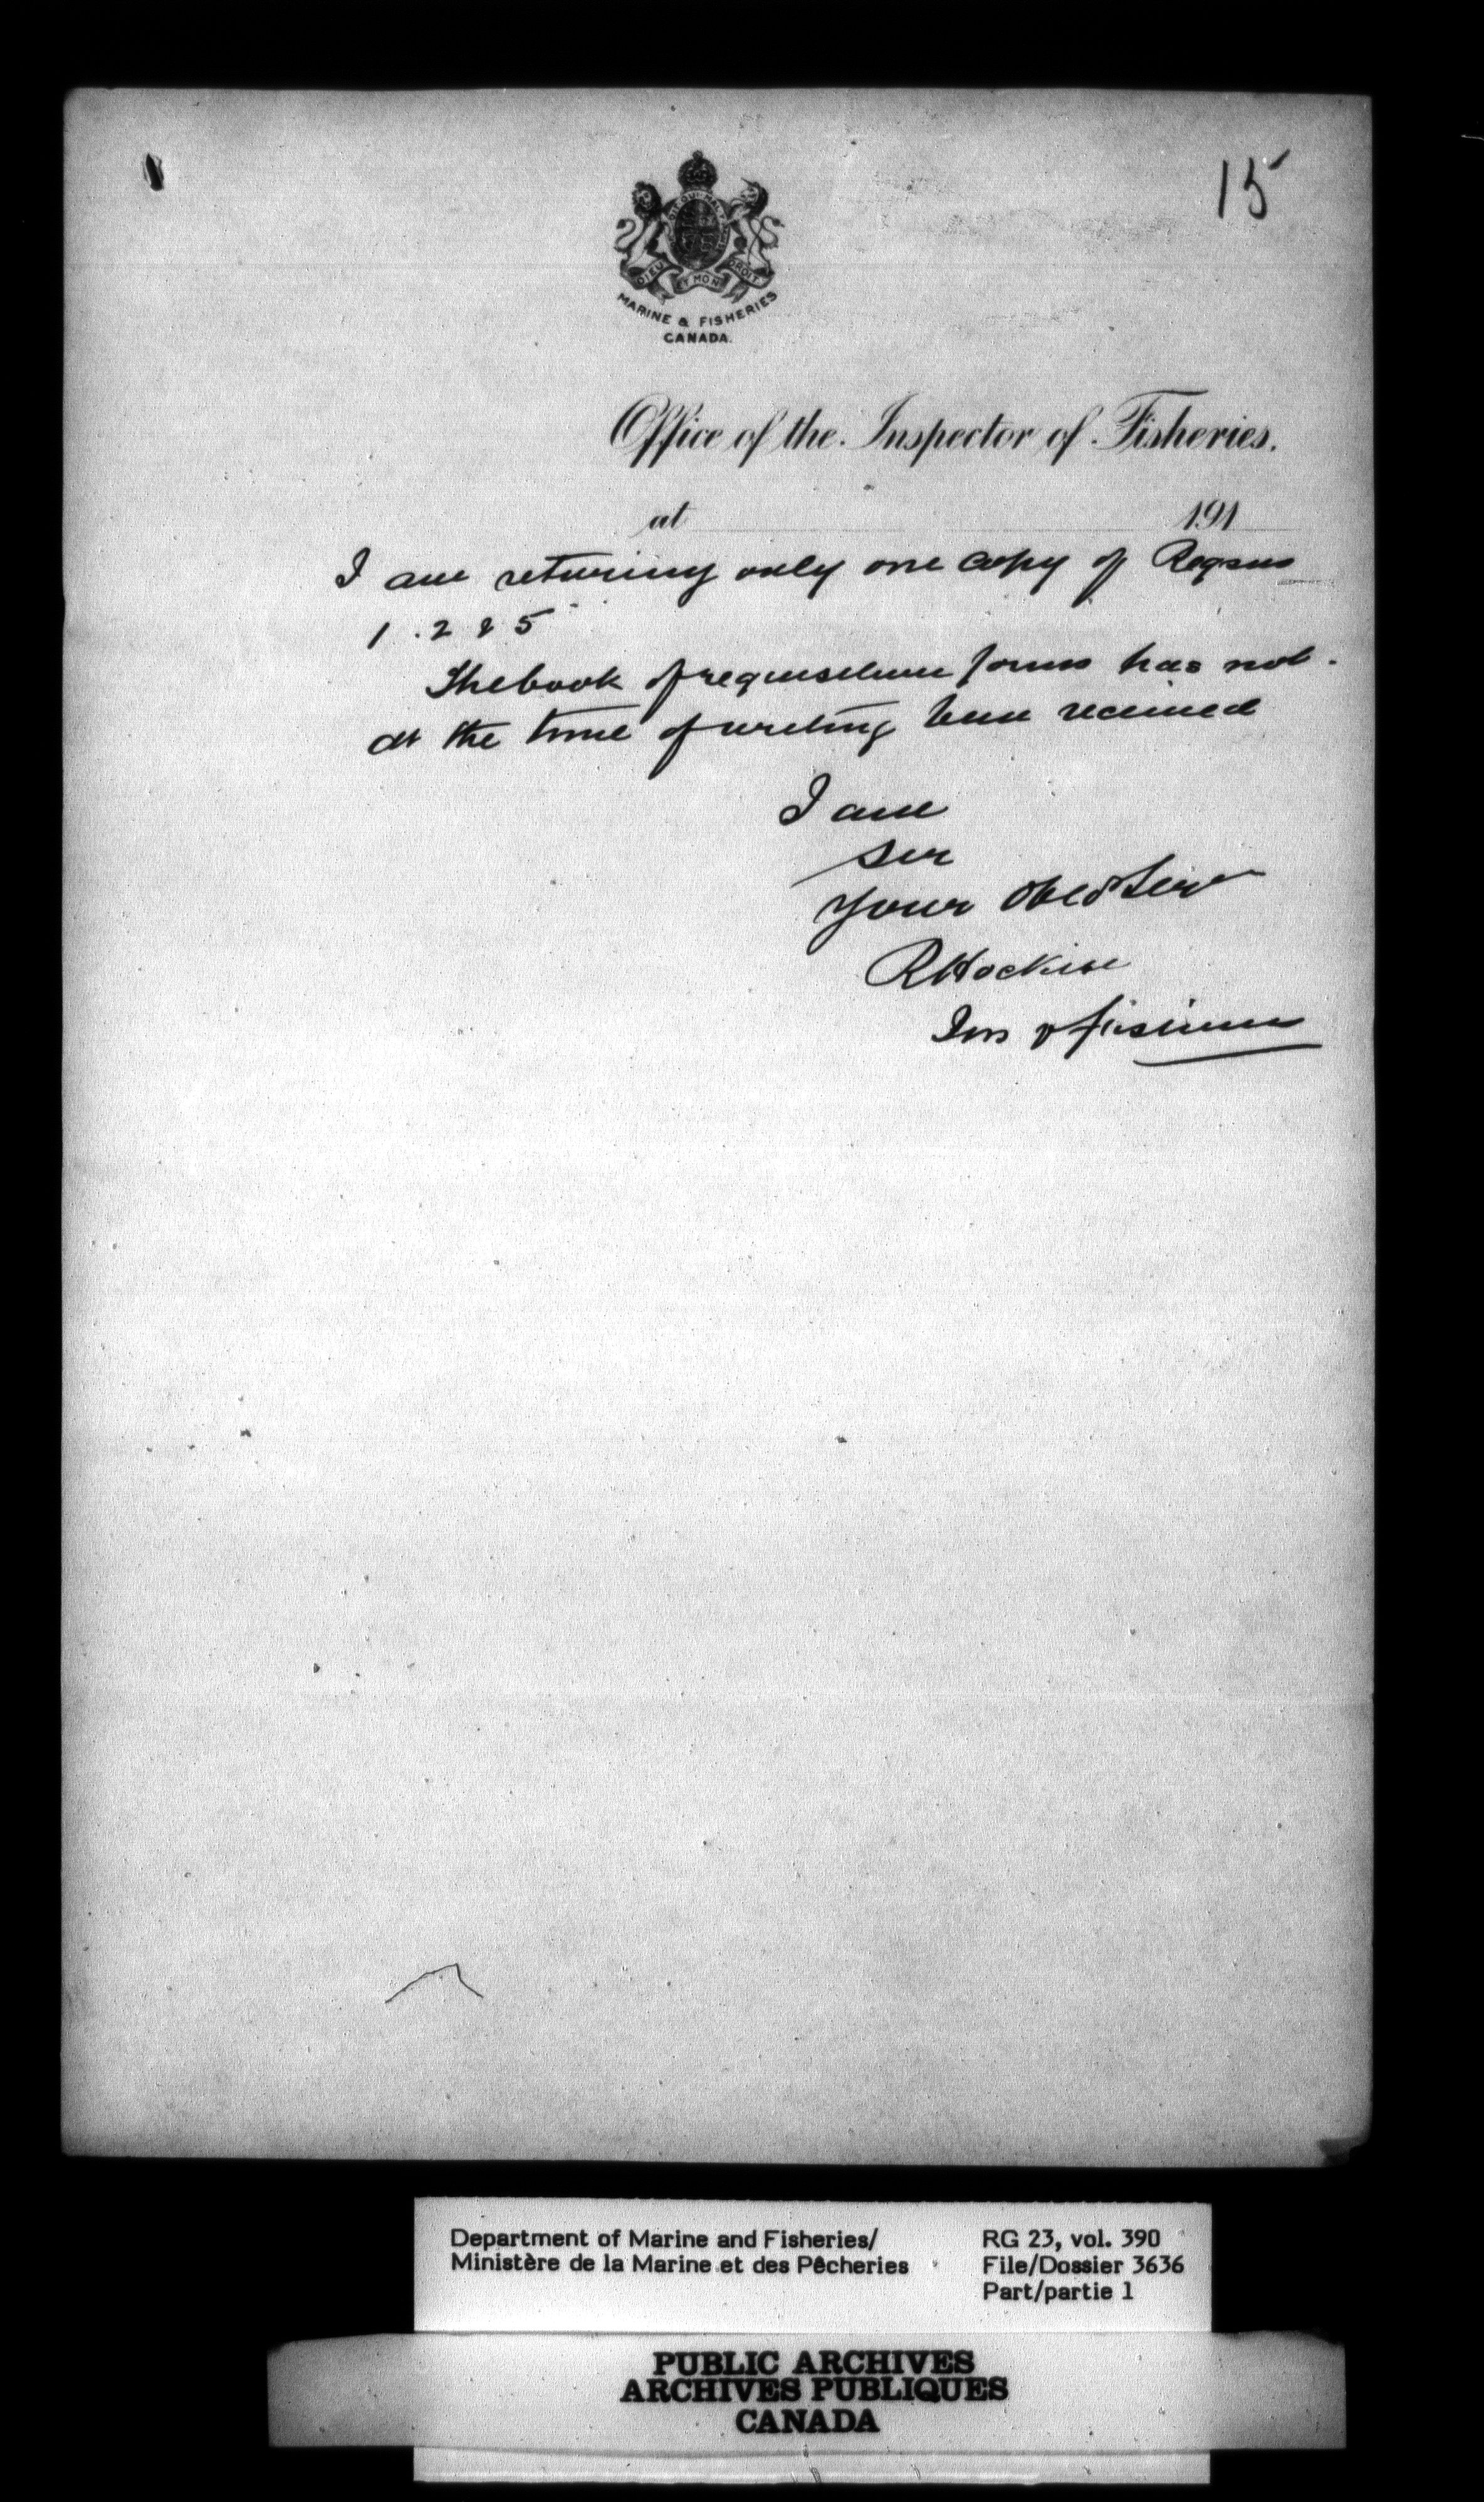 15
DIEU ET MON DROIT
MARINE & FISHERIES
CANADA.
Office of the Inspector of Fisheries.
at 191
I am returning only one copy of Reqsns
1 . 2 & 5
The book of requisition forms has not
at the time of writing been received
I am
Sir
Your Obed Serv
R Hockin
Ins of Fisheries
Department of Marine and Fisheries/
Ministère de la Marine et des Pêcheries
RG 23, vol. 390
File/Dossier 3636
Part/partie 1
PUBLIC ARCHIVES
ARCHIVES PUBLIQUES
CANADA